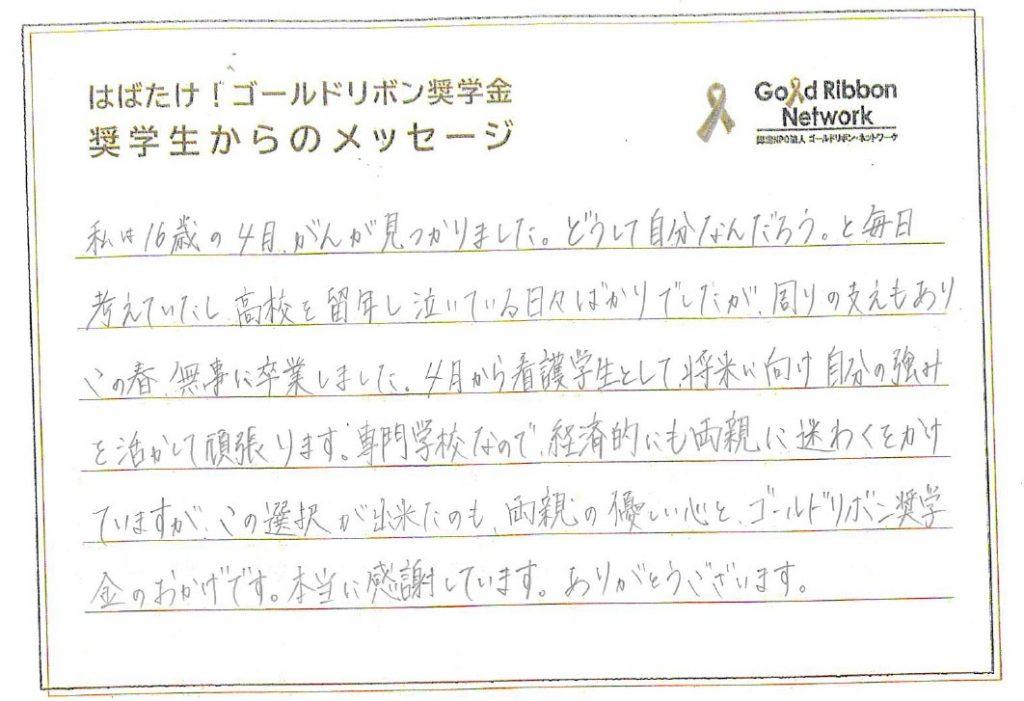 はばたけ！ゴールドリボン奨学金
奨学生からのメッセージ
Gold Ribbon
Network
認定NPO法人 ゴールドリボン・ネットワーク
私は16歳の4月、がんが見つかりました。どうして自分なんだろう。と毎日
考えていたし、高校を留年し泣いている日々ばかりでしたが、周りの支えもあり
この春、無事に卒業しました。4月から看護学生として、将来に向け自分の強み
を活かして頑張ります。専門学校なので、経済的にも両親に迷わくをかけ
ていますが、この選択が出来たのも、両親の優しい心と、ゴールドリボン奨学
金のおかげです。本当に感謝しています。ありがとうございます。